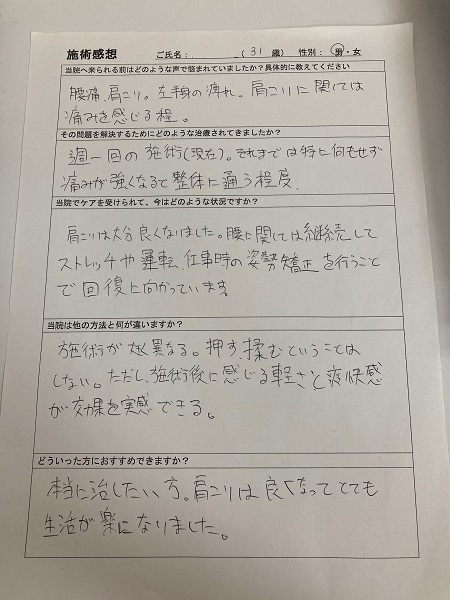 施術感想 ご氏名： （31 歳） 性別：男・女
当院へ来られる前はどのような声で悩まれていましたか？具体的に教えてください
腰痛、肩こり。左手の痺れ。肩こりに関しては
痛みを感じる程。
その問題を解決するためにどのような治療されてきましたか？
週一回の施術(現在)。それまでは特に何もせず
痛みが強くなると整体に通う程度。
当院でケアを受けられて、今はどのような状況ですか？
肩こりは大分良くなりました。腰に関しては継続して
ストレッチや運転、仕事時の姿勢矯正を行うこと
で回復に向かっています
当院は他の方法と何が違いますか？
施術が異なる。押す、揉むということは
しない。ただし、施術後に感じる軽さと爽快感
が効果を実感できる。
どういった方におすすめできますか？
本当に治したい方。肩こりは良くなってとても
生活が楽になりました。